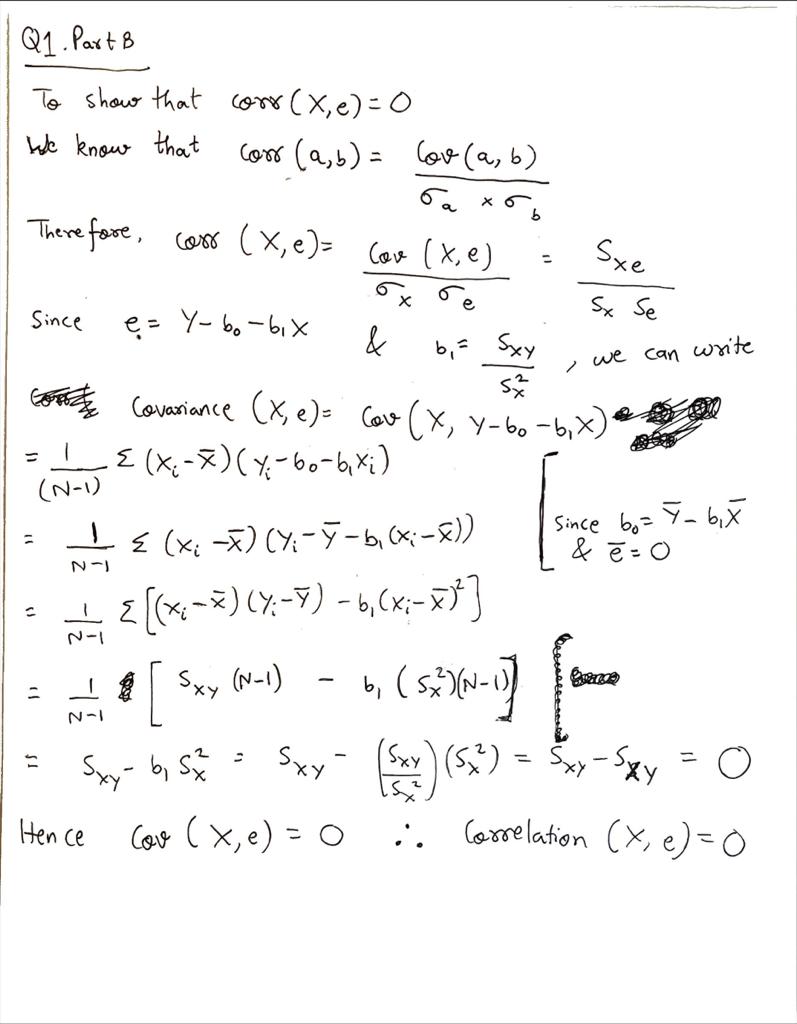 Q1. Part B
To show that corr (X, e) = 0
We know that corr (a, b) = Cov (a, b) / σa × σb
Therefore, corr (X, e) = Cov (X, e) / σx σe = Sxe / Sx Se
Since e = Y - b₀ - b₁X & b₁ = Sxy / Sx², we can write
Covariance (X, e) = Cov (X, Y - b₀ - b₁X)
= 1/(N-1) Σ (Xi - X̄)(Yi - b₀ - b₁Xi)
= 1/N-1 Σ (Xi - X̄)(Yi - Ȳ - b₁(Xi - X̄)) [ Since b₀ = Ȳ - b₁X̄
& ē = 0
= 1/N-1 Σ [(Xi - X̄)(Yi - Ȳ) - b₁(Xi - X̄)²]
= 1/N-1 [ Sxy (N-1) - b₁ (Sx²)(N-1)]
= Sxy - b₁ Sx² = Sxy - (Sxy / Sx²)(Sx²) = Sxy - Sxy = 0
Hence Cov (X, e) = 0 ∴ Correlation (X, e) = 0